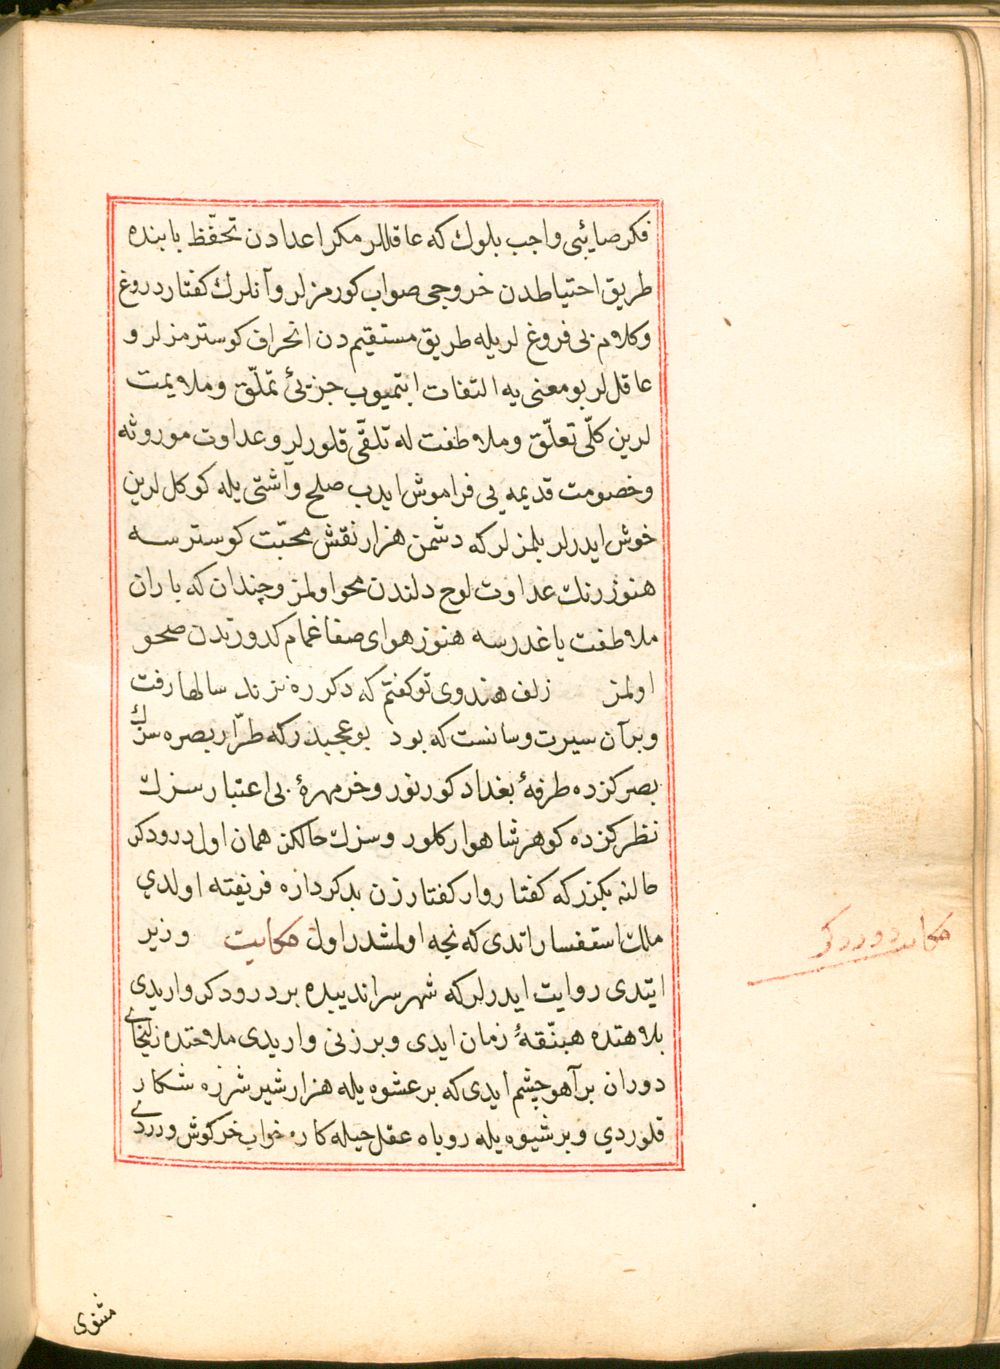 فكر صايبى واجب بلوك كه عاقللر مكر اعدادن تحفّظ بابنده
طريق احتياطدن خروجى صواب كورمزلر وآنلرك كفتار دروغ
وكلام بى فروغ لريله طريق مستقيمدن انحراف كوسترمزلر و
عاقللر بو معنى يه التفات ايتميوب جزيئ تملّق وملايمت
لرين كلّى تعلّق وملاطفت له تلقّى قلورلر وعداوت موروثه
وخصومت قديمه يى فراموش ايدب صلح وآشتى يله كوكل لرين
خوش ايدرلر بلمزلركه دشمن هزار نقش محبّت كوسترسه
هنوز رنك عداوت لوح دلندن محو اولمز وچندان كه باران
ملاطفت ياغدرسه هنوز هواى صفا غمام كدورتدن صحو
اولمز زلف هندوى تو كفتم كه دكر ره نزند سالها رفت
وبرآن سيرت وسانست كه بود بو عجبدركه طرّار بصره سزك
بصركزده طرفۀ بغداد كورنور وخرمهرۀ بى اعتبار سزك
نظركزده كوهر شاهوار كلور وسزك حالكز همان اول درودكر
حالنه بكزركه كفتار روار كفتار زن بدكردازه فريفته اولدي
ملك استفسار اتدى كه نجه اولمشدر اول حكايت وزير
ايتدى روايت ايدرلركه شهر سرانديبده بر درودكر واريدى
بلاهتده هبنّقۀ زمان ايدى وبر زنى واريدى ملاحتده زليخاى
دوران بر آهوچشم ايدى كه بر عشوه يله هزار شير شرزه شكار
قلوردي وبر شيوه يله روباه عقل حيله كاره خواب خركوش ويرردى
حكايت دورودكر
مثنوى